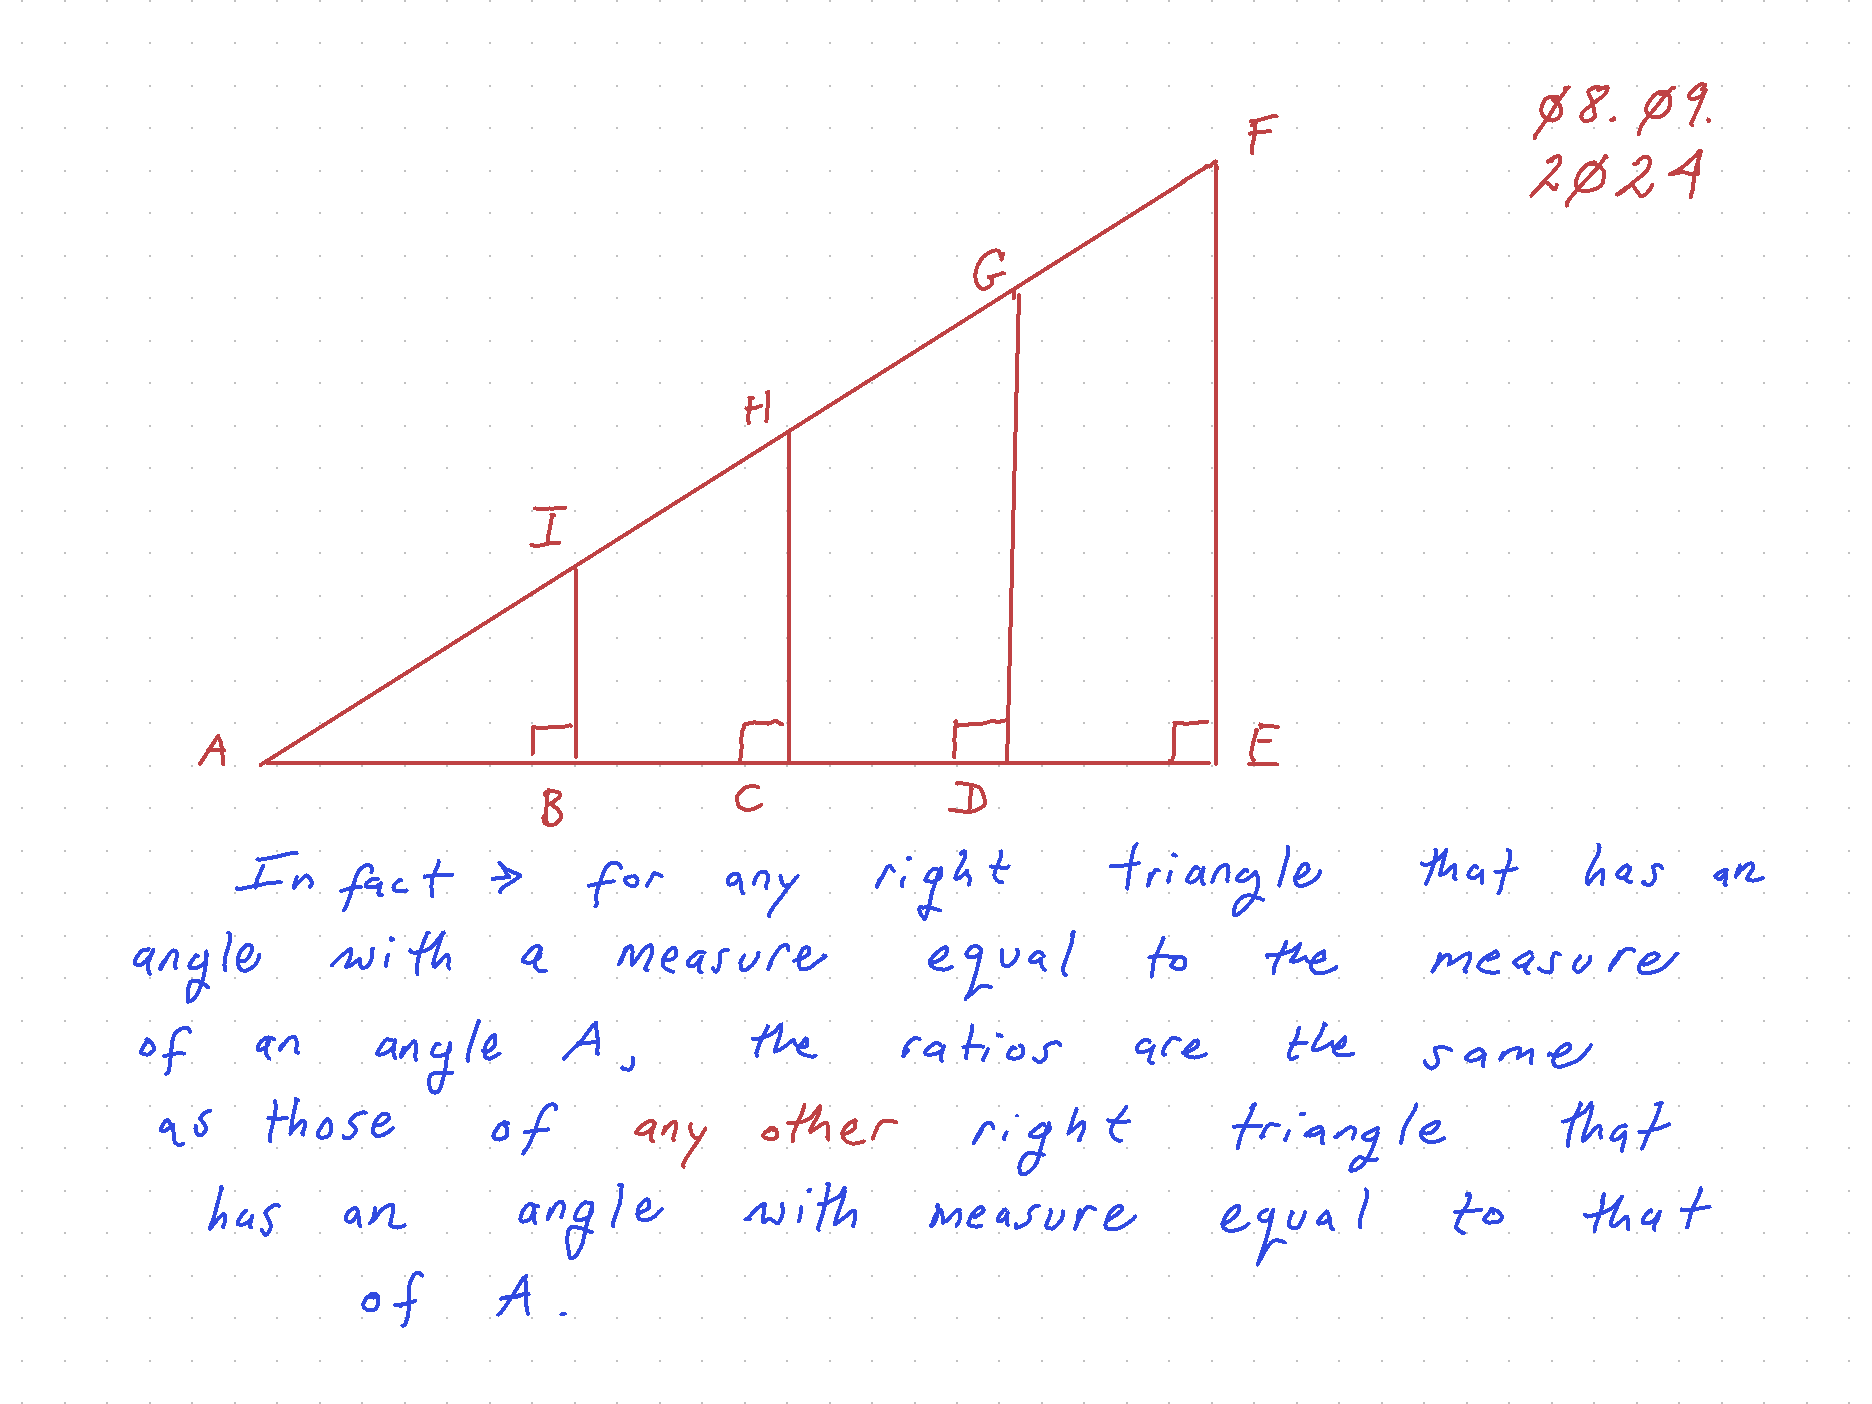 Ø8. Ø9.
2Ø24
F
G
H
I
A
E
B
C
D
In fact → for any right triangle that has an
angle with a measure equal to the measure
of an angle A, the ratios are the same
as those of any other right triangle that
has an angle with measure equal to that
of A.